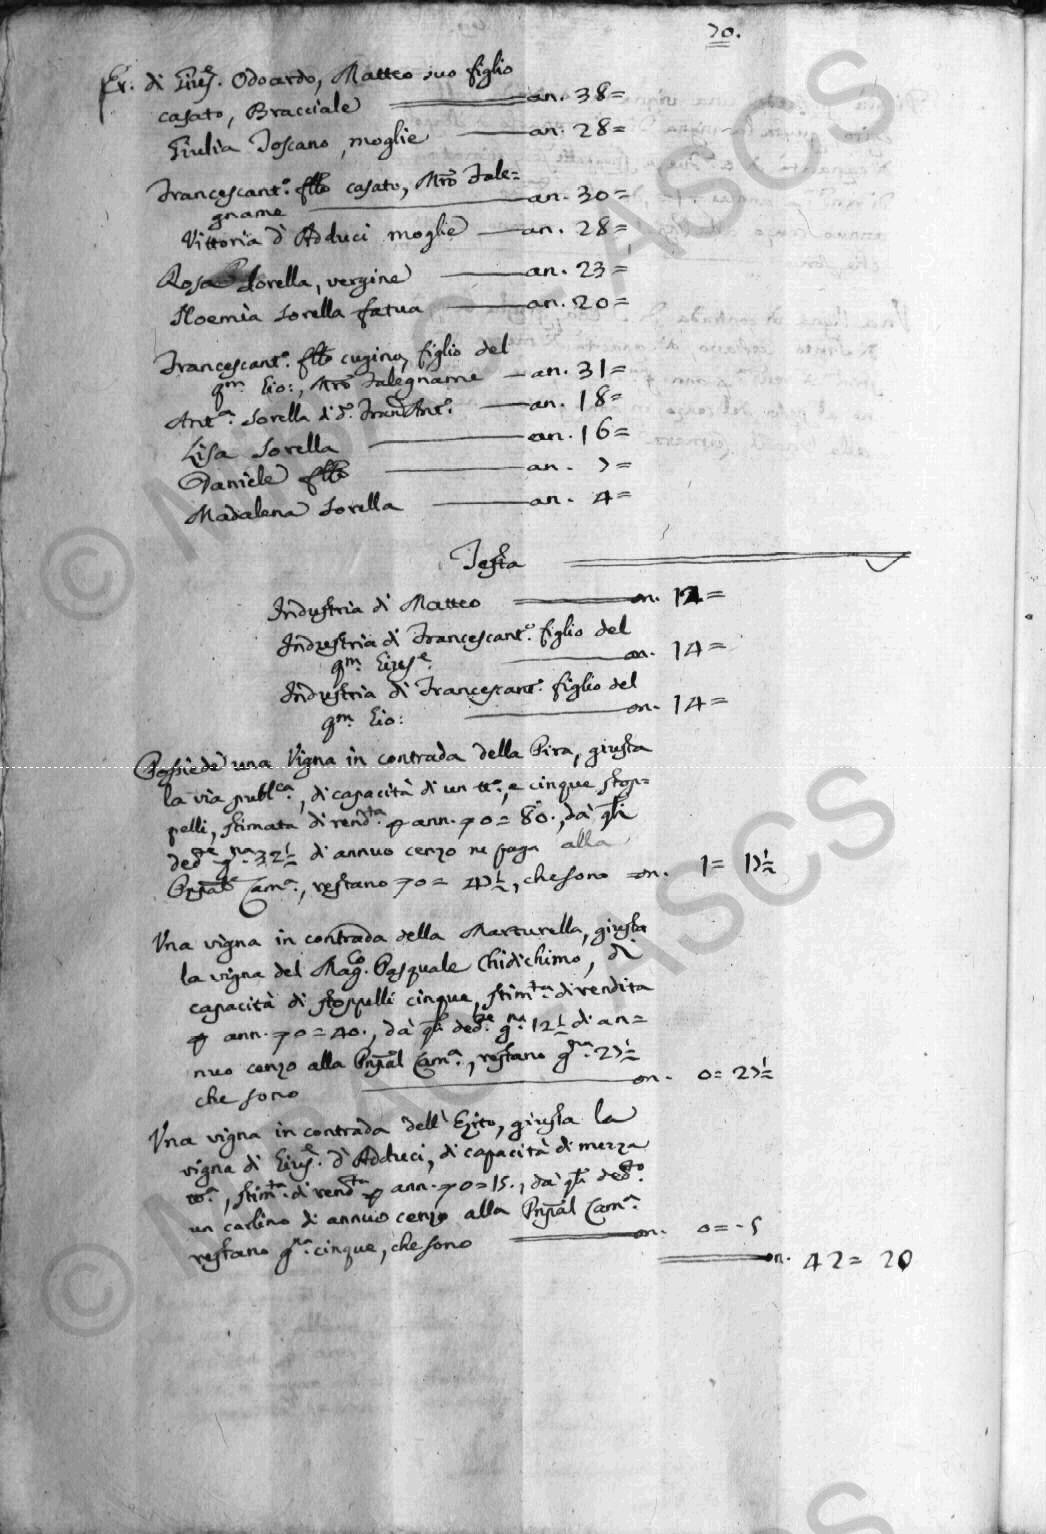 70.
Er. di Gius.e Odoardo, Matteo suo figlio
casato, Bracciale an. 38=
Giulia Toscano, moglie an. 28=
Francescant.o fllo casato, Mrõ Fale=
gname an. 30=
Vittoria d'Adduci moglie an. 28=
Rosa Sorella, vergine an. 23=
Noemia Sorella fatua an. 20=
Francescant.o fllo cugino, figlio del
qm. Gio:, Mrõ Falegname an. 31=
Ant.a Sorella di d.o Fran.Ant.o an. 18=
Lisa Sorella an. 16=
Daniele fllo an. 7=
Madalena Sorella an. 4=
Testa
Industria di Matteo on. 12=
Industria di Francescant.o figlio del
qm. Gius.e on. 14=
Industria di Francescant.o figlio del
qm. Gio: on. 14=
Possiede una Vigna in contrada della Pira, giusta
la via publ.ca, di capacità di un tt.o, e cinque stop=
pelli, stimata di rend.ta p ann. 70= 80., da q̃li
ded.te g.na 32½ di annuo cenzo ne paga alla
Pñpal Cam.a, restano 70= 47½, che sono on. 1= 17½
Una vigna in contrada della Marturella, giusta
la vigna del Mag.co Pasquale Chidichimo, di
capacità di stoppelli cinque, stim.ta di rendita
p ann. 70=40., da q̃li ded.te g.na 12½ di an=
nuo cenzo alla Pñpal Cam.a, restano g.na 27½
che sono on. 0= 27½
Una vigna in contrada dell'Ezito, giusta la
vigna di Gius.e d'Adduci, di capacità di mezza
tt.a, stim.ta di rend.ta p ann. 70=15., da q̃li ded.to
un carlino di annuo cenzo alla Pñpal Cam.a
restano g.na cinque, che sono on. 0=-5
on. 42= 20
© MIBAC - ASCS
© MIBAC - ASCS